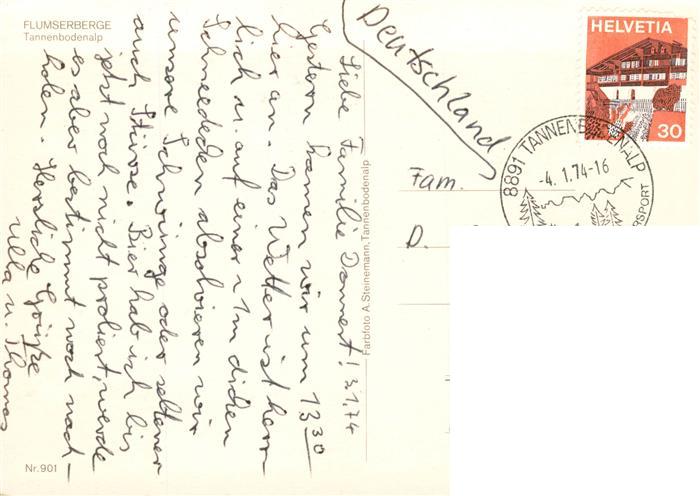 FLUMSERBERGE
Tannenbodenalp
Liebe Familie Donnert! 3.1.74
Gestern kamen wir um 13³⁰
hier an. Das Wetter ist herr-
lich u. auf einer 1 m dicken
Schneedecke absolvieren wir
unsere Schwünge oder seltener
auch Stürze. Bier hab ich bis
jetzt noch nicht probiert, werde
es aber bestimmt noch nach-
holen. Herzliche Grüße
Ulla u. Thomas
Nr. 901
Farbfoto A. Steinemann, Tannenbodenalp
Deutschland
HELVETIA
30
8891 TANNENBODENALP
-4.1.74-16
Fam.
D.